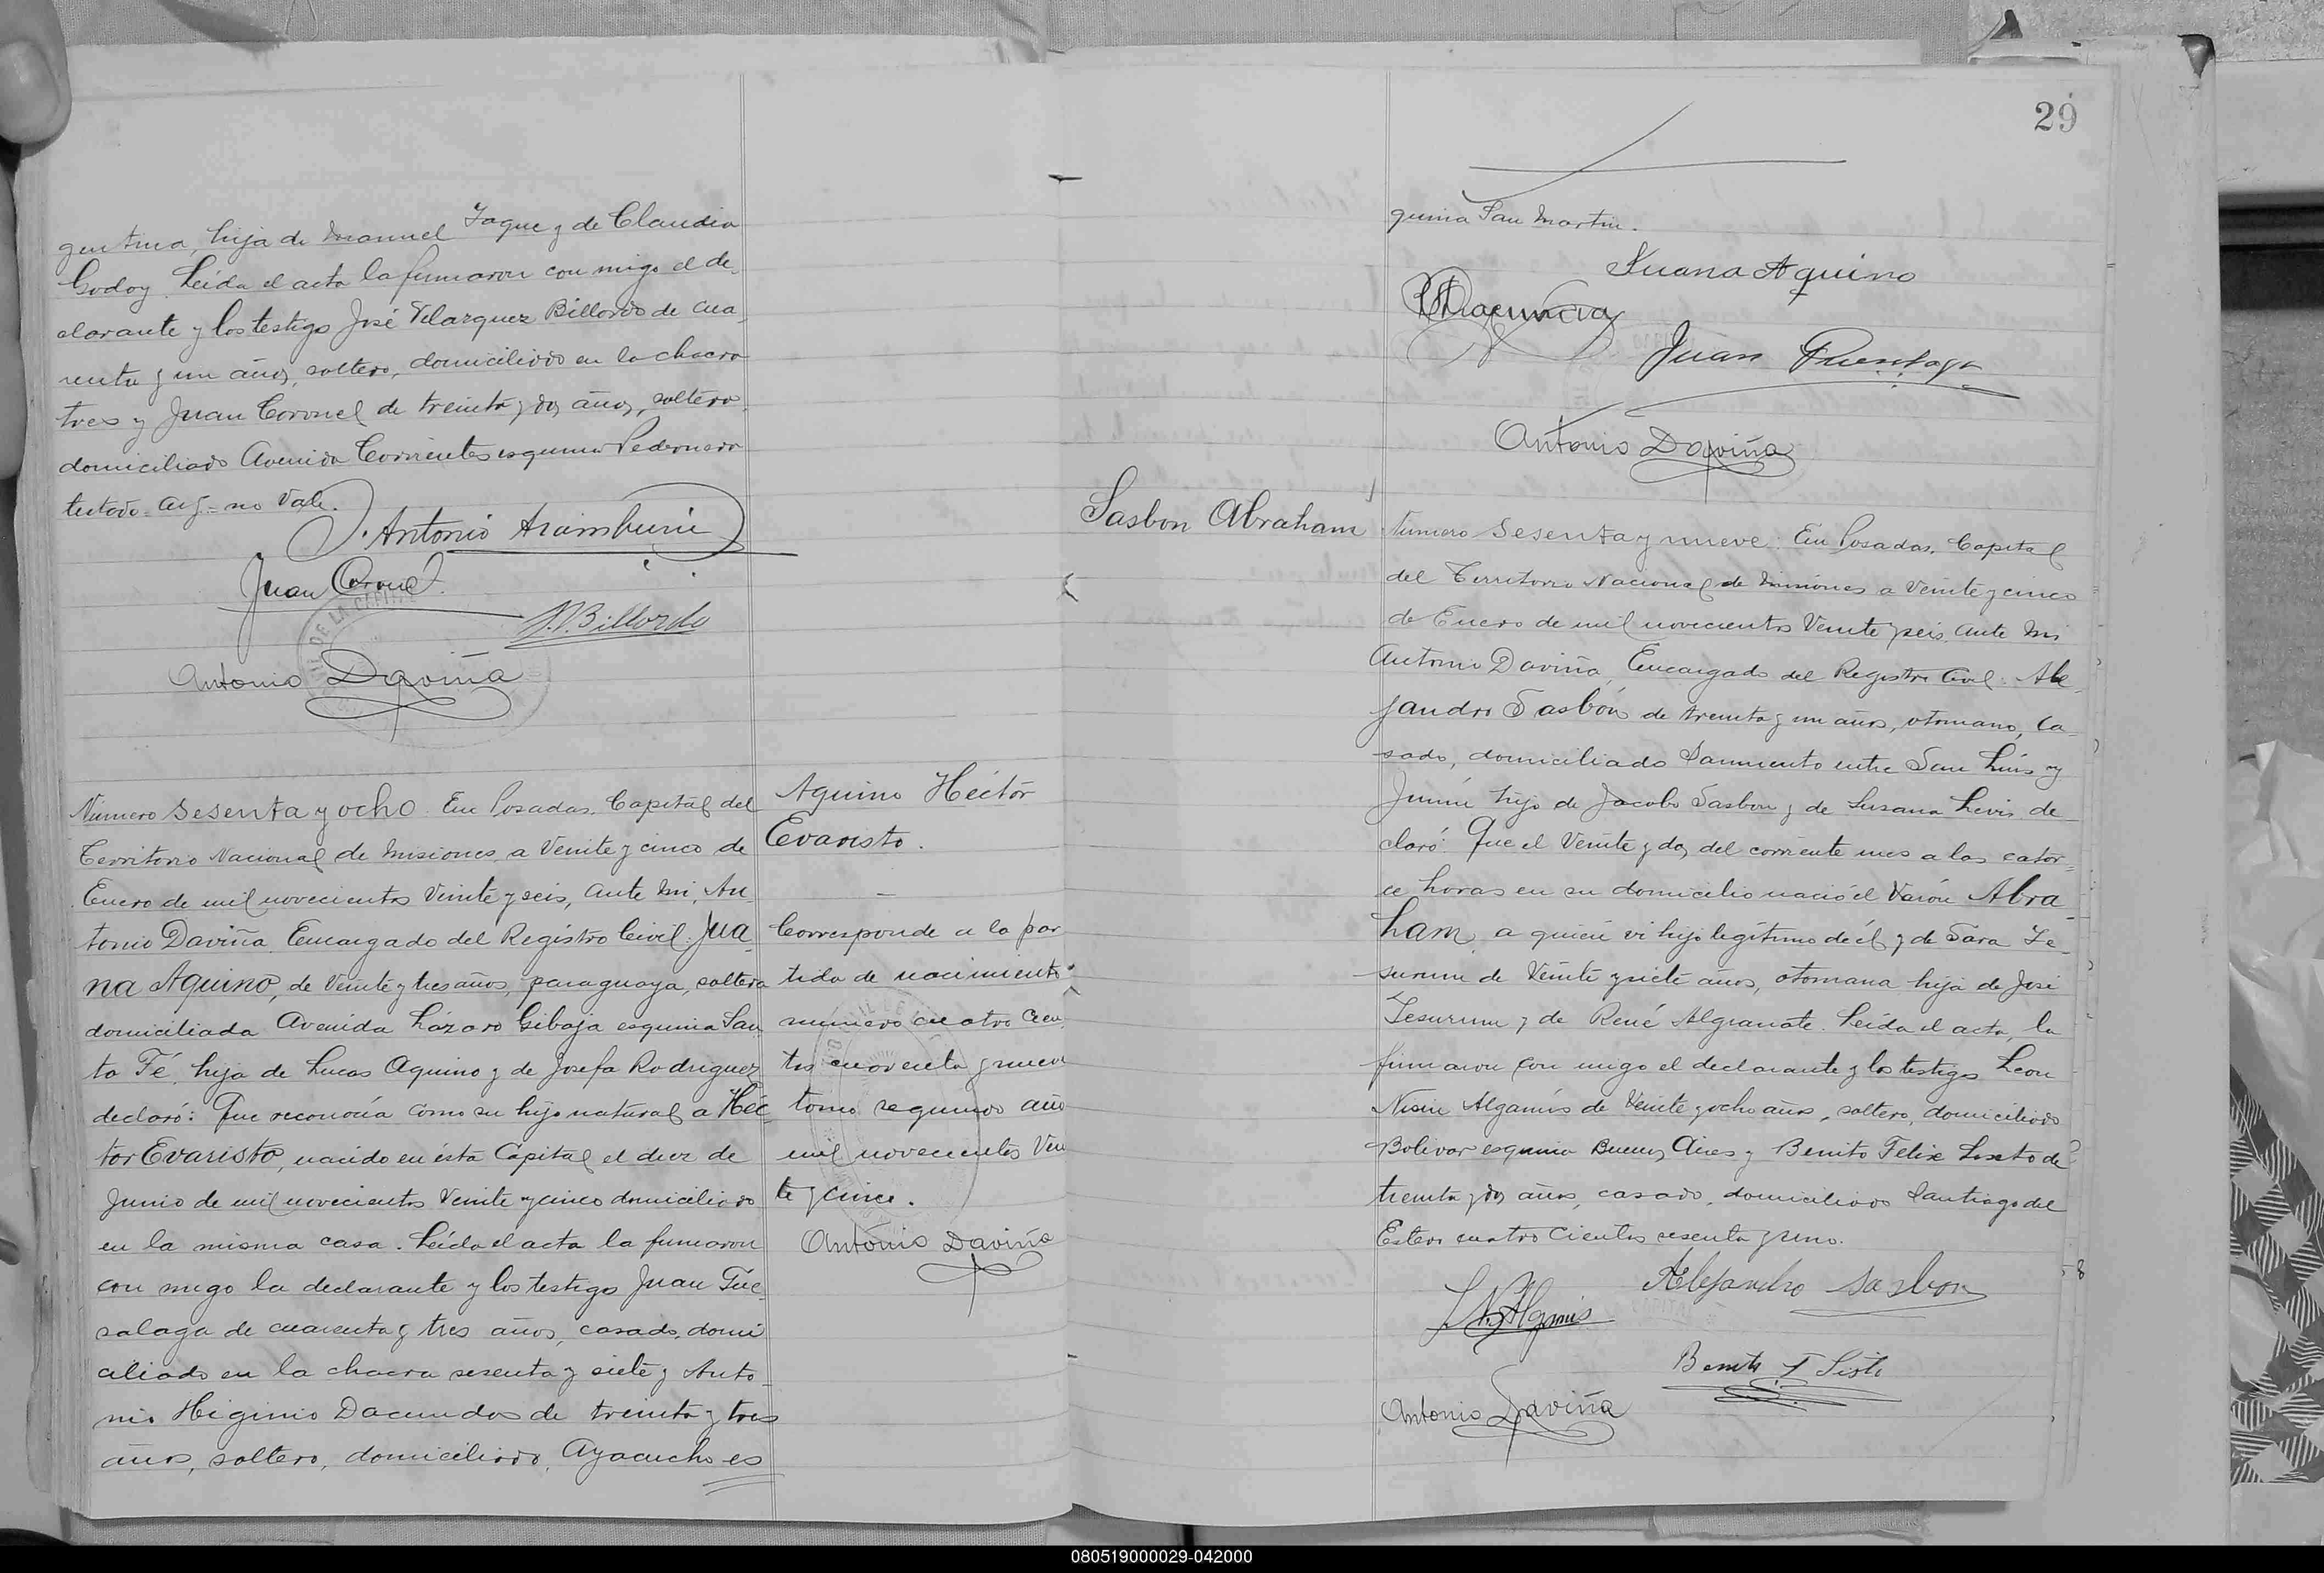 gentina, hija de Manuel Jaque y de Claudia
Godoy. Leida el acta la firmaron con migo el de-
clarante y los testigos José Velazquez Billordo de cua-
renta y un años, soltero, domiciliado en la chacra
tres y Juan Coronel de treinta y dos años, soltero,
domiciliado Avenida Corrientes esquina Pedernera
testado - arg - no vale.
J. Antonio Aramburu
Juan Coronel
J. V. Billordo
Antonio Daviña
Número sesenta y ocho. En Posadas, Capital del
Territorio Nacional de Misiones, a veinte y cinco de
Enero de mil novecientos veinte y seis, ante mi, An-
tonio Daviña Encargado del Registro Civil: Jua-
na Aquino, de veinte y tres años, paraguaya, soltera
domiciliada Avenida Lázaro Gibaja esquina San-
ta Fé, hija de Lucas Aquino y de Josefa Rodriguez
declaró: Que reconocía como su hijo natural a Héc-
tor Evaristo, nacido en ésta Capital el diez de
Junio de mil novecientos veinte y cinco domiciliado
en la misma casa. Leída el acta la firmaron
con migo la declarante y los testigos Juan
de cuarenta y tres años, casado, domi-
ciliado en la chacra sesenta y siete y Anto-
nio Higinio de treinta y tres
años, soltero, domiciliado, Ayacucho es
Aquino Héctor
Evaristo.
Corresponde a la par
tida de nacimiento
numero cuatro cien
tos noventa y nueve
tomo segundo año
mil novecientos vein
te y cinco.
Antonio Daviña
29
quina San Martin.
Juana Aquino
Juan
Antonio Daviña
Sasbon Abraham
Número sesenta y nueve. En Posadas, Capital
del Territorio Nacional de Misiones a veinte y cinco
de Enero de mil novecientos veinte y seis, ante mi
Antonio Daviña, Encargado del Registro Civil: Ale-
jandro Sasbón de treinta y un años, otomano, ca-
sado, domiciliado Sarmiento entre San Luis y
Junín hijo de Jacobo Sasbon y de Susana Levis de-
claró: Que el veinte y dos del corriente mes a las cator-
ce horas en su domicilio nació el varón Abra-
ham, a quien vi hijo legítimo de él y de Sara Je-
surum de veinte y siete años, otomana hija de José
Jesurum y de René Algranate. Leída el acta, la
firmaron con migo el declarante y los testigos Leon
Nisin Algamis de veinte y ocho años, soltero, domiciliado
Bolivar esquina Buenos Aires y Benito Felix de
treinta y dos años, casado, domiciliado Santiago del
Estero cuatro cientos sesenta y uno.
Alejandro Sasbon
L. N. Algamis
Benito F
Antonio Daviña
080519000029-042000